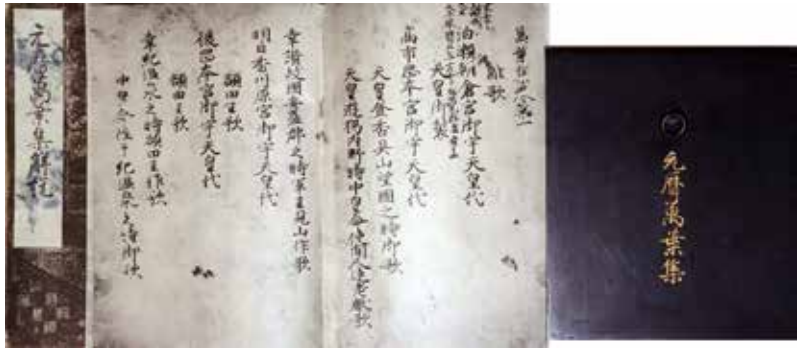 元暦萬葉集
萬葉集巻第一
雜歌
泊瀬朝倉宮御宇天皇代
天皇御製
高市崗本宮御宇天皇代
天皇登香具山望國之時御歌
天皇遊獦内野時中皇命使間人連老獻歌
幸讃岐國安益郡之時軍王見山作歌
明日香川原宮御宇天皇代
額田王歌
後崗本宮御宇天皇代
額田王歌
幸紀温泉之時額田王作歌
中皇命徃于紀温泉之時御歌
元暦萬葉集解説